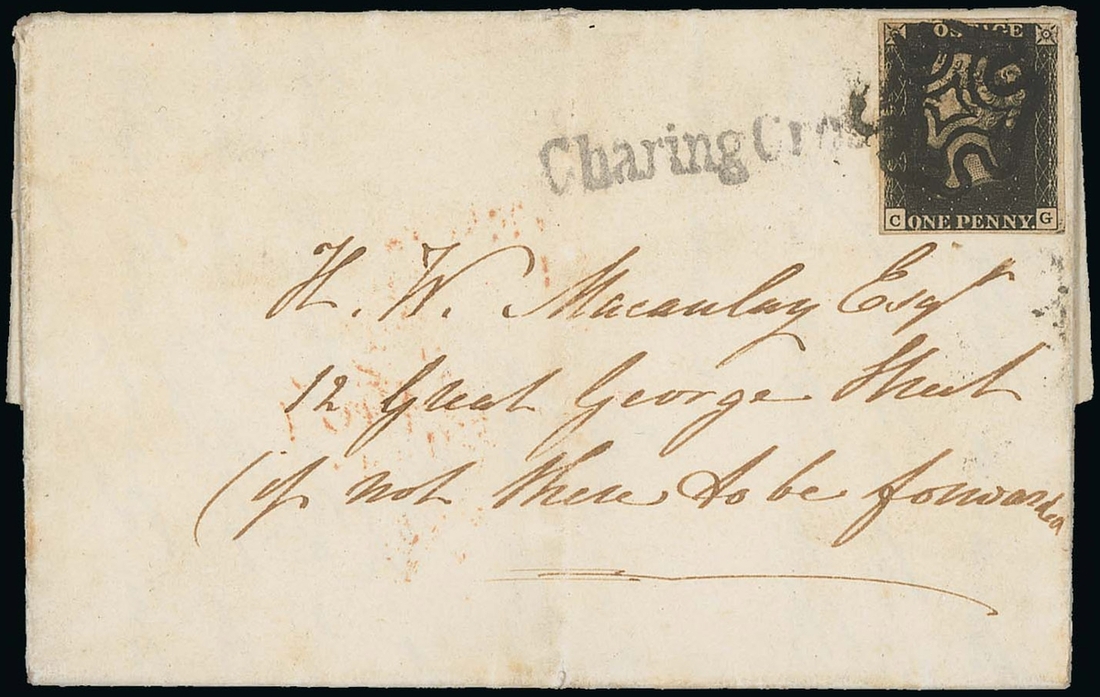 POSTAGE
Charing Cross
C ONE PENNY. G
H. W. Macaulay Esqr
12 Great George Street
(if not there to be forwarded